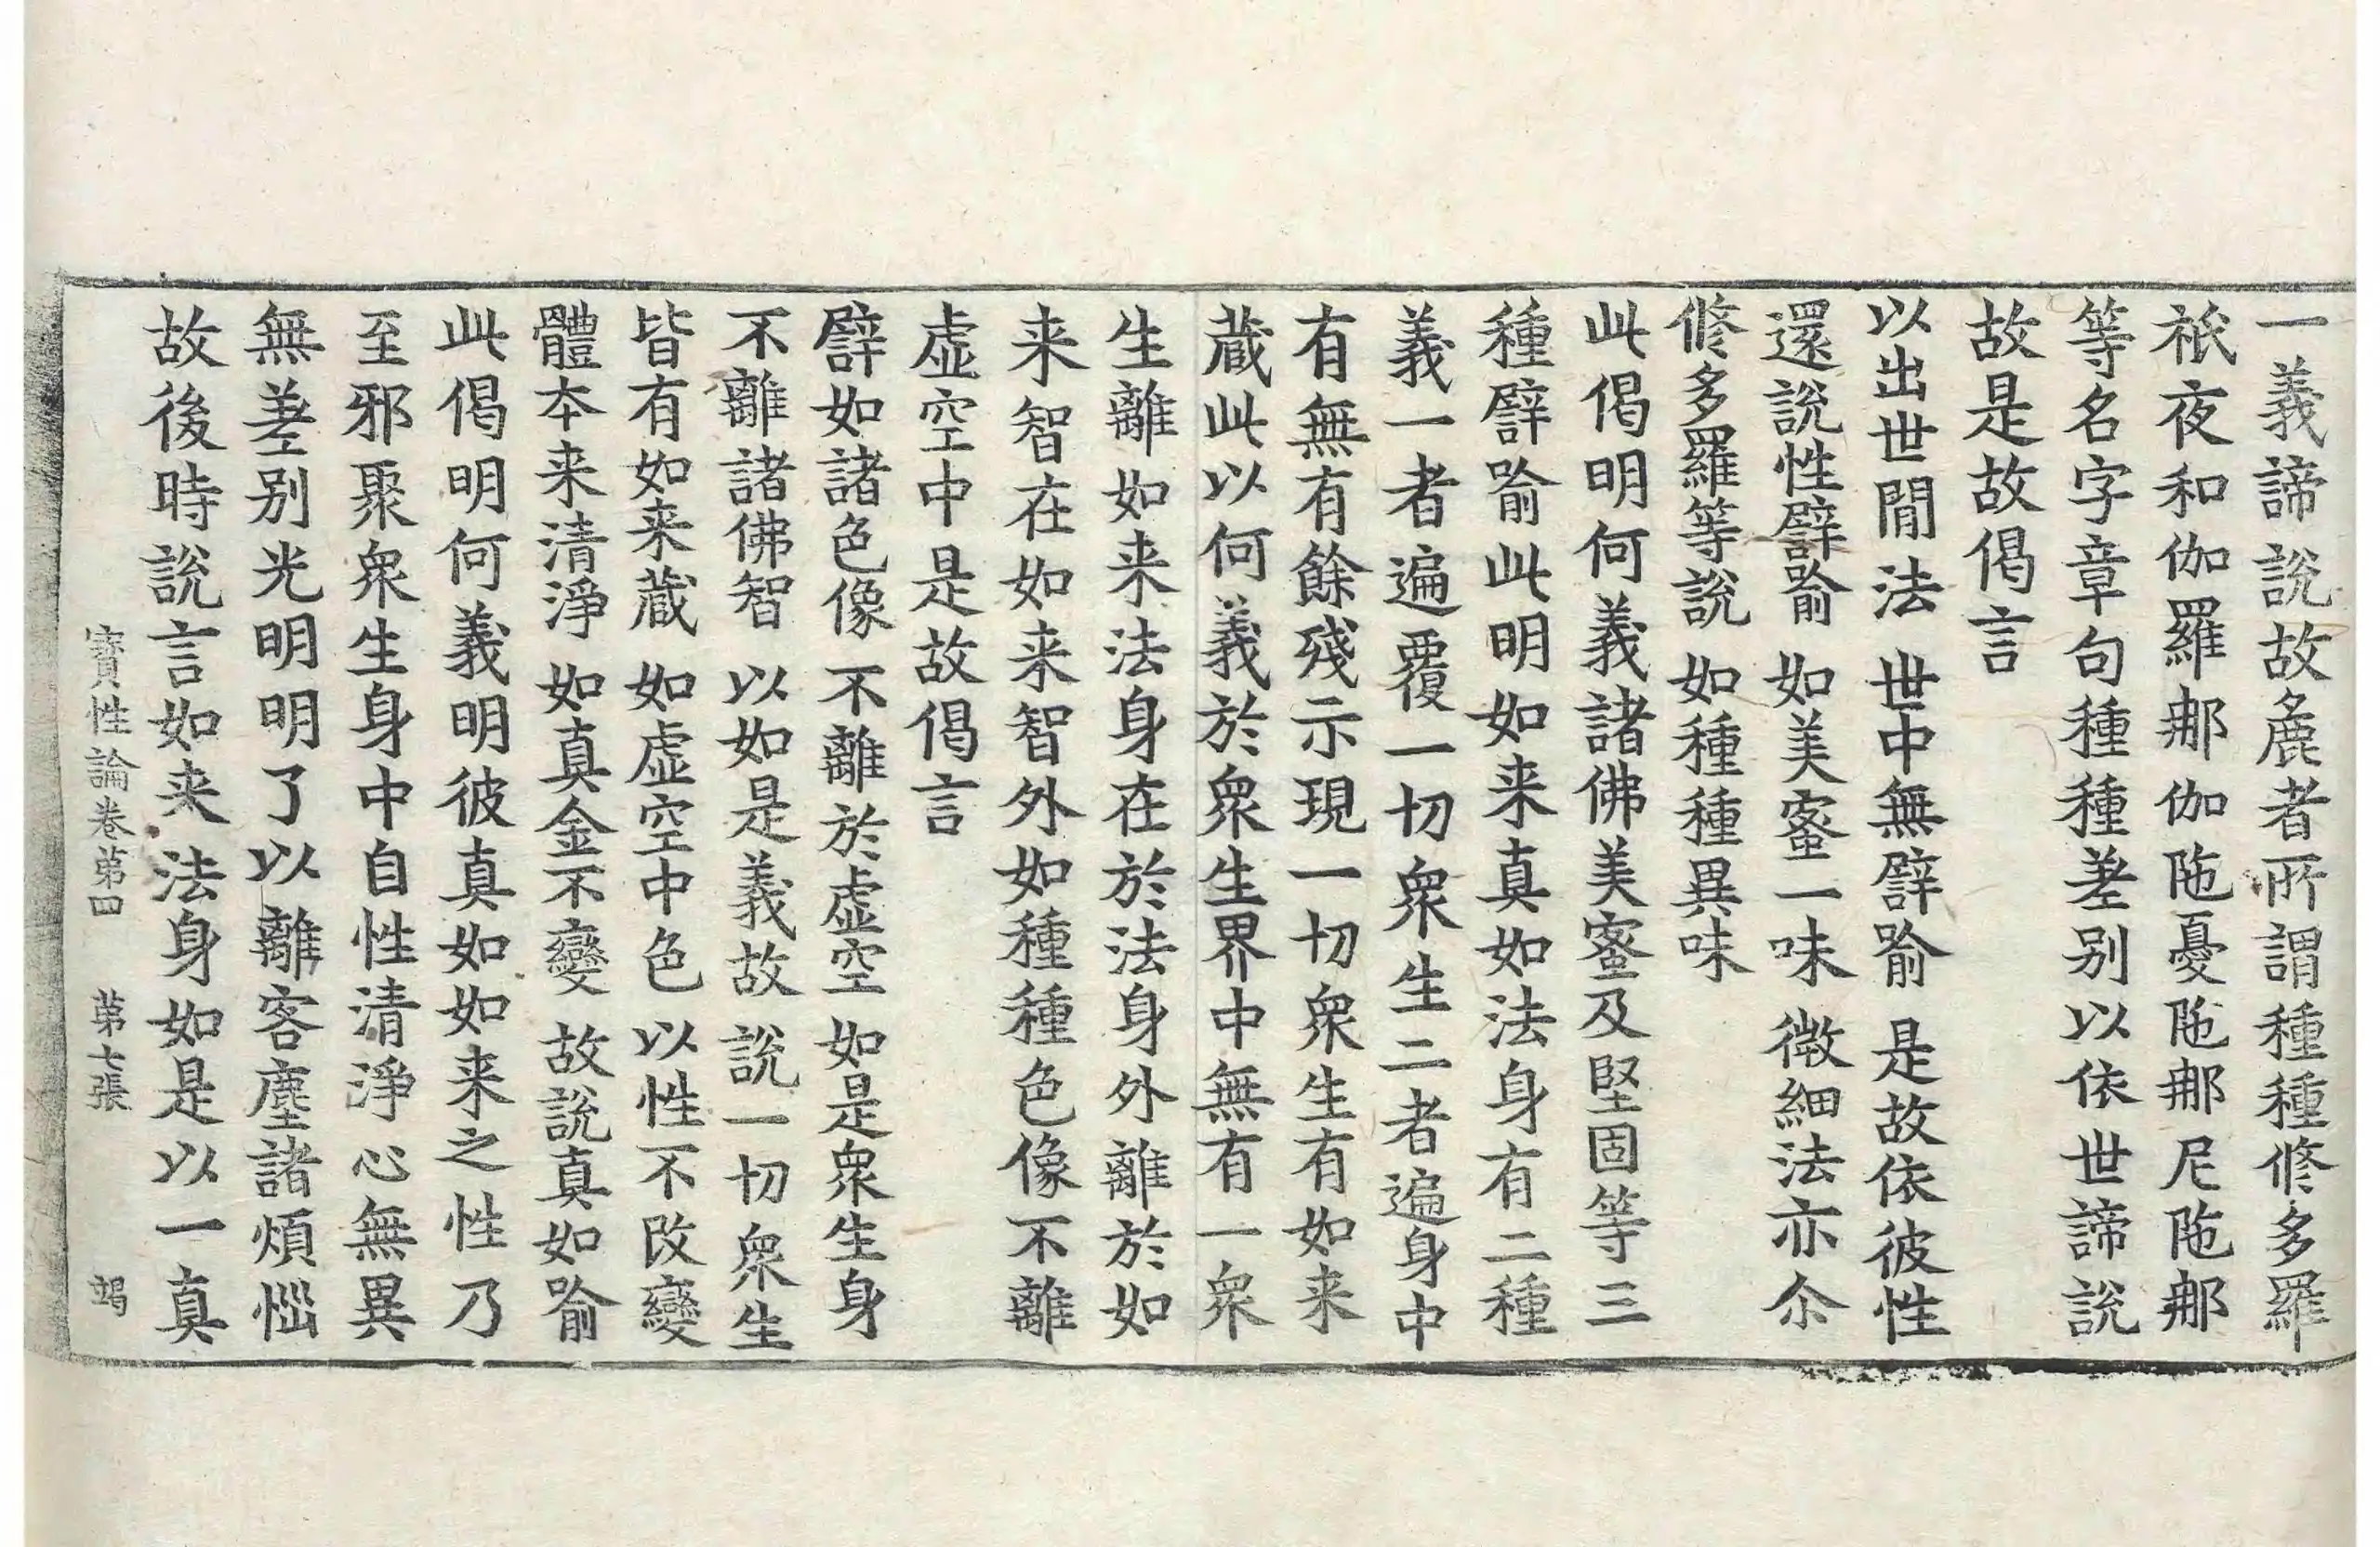 一義諦說故麁者所謂種種修多羅
祇夜和伽羅那伽陁憂陁那尼陁那
等名字章句種種差别以依世諦說
故是故偈言
以出世間法 世中無譬喻 是故依彼性
還說性譬喻 如美蜜一味 微細法亦尒
修多羅等說 如種種異味
此偈明何義諸佛美蜜及堅固等三
種譬喻此明如来真如法身有二種
義一者遍覆一切衆生二者遍身中
有無有餘殘示現一切衆生有如来
蔵此以何義於衆生界中無有一衆
生離如来法身在於法身外離於如
来智在如来智外如種種色像不離
虚空中是故偈言
譬如諸色像 不離於虚空 如是衆生身
不離諸佛智 以如是義故 說一切衆生
皆有如来蔵 如虚空中色 以性不改變
體本来清淨 如真金不變 故說真如喻
此偈明何義明彼真如如来之性乃
至邪聚衆生身中自性清淨心無異
無差别光明明了以離客塵諸煩惱
故後時說言如来法身如是以一真
寳性論卷第四 第七張 竭